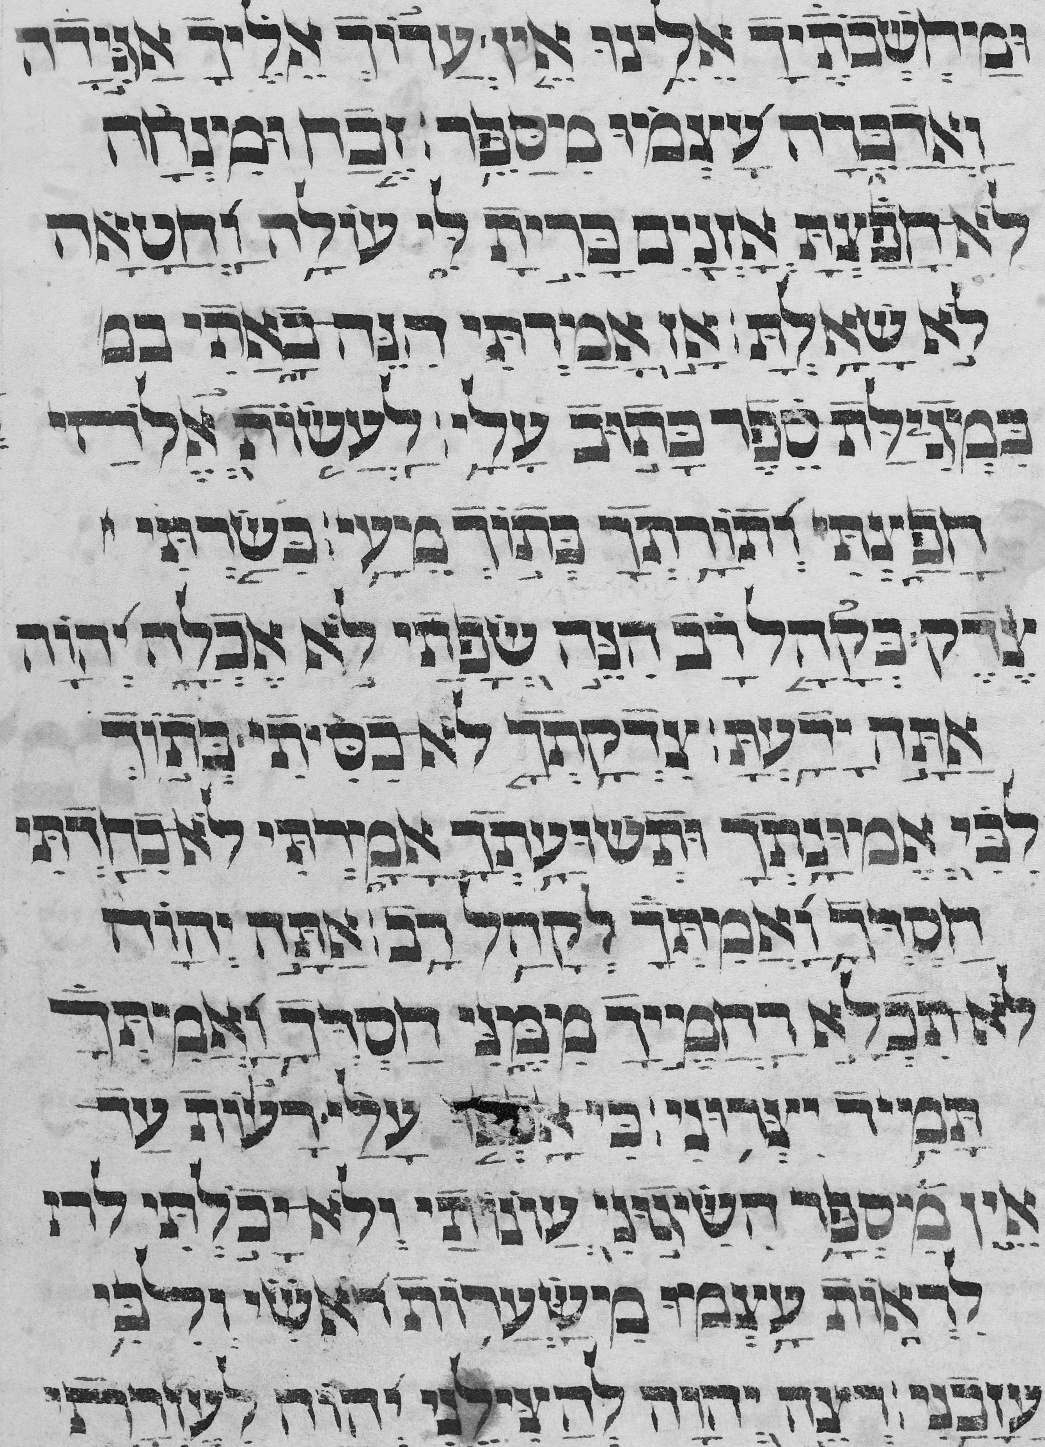 ומיחשבתיך אלינו אין ערוך אליך אגידה
ואדברה עצמו מספר זבח ומינחה
לא חפצת אזנים כרית לי עולה וחטאה
לא שאלת אז אמרתי הנה באתי במ
במגילת ספר כתוב עלי לעשות אלהי
חפיצתי ותורתך בתוך מיעי בשרתי
צדק בקהל רב הנה שפתי לא אכלה יהוה
אתה ידעת צדקתך לא כסיתי בתוך
לבי אמונתך ותשועתך אמרתי לא כחדתי
חסדך ואמתך לקהל רב אתה יהוה
לא תכלא רחמיך ממני חסדך ואמיתך
תמיד יצרוני כי עלי רעות עד
אין מיספר השיגוני עונותי ולא יכלתי לר
לראות עצמו מישערות ראשי ולבי
עזבני רצה יהוה להצילני יהוה לעוזרתי